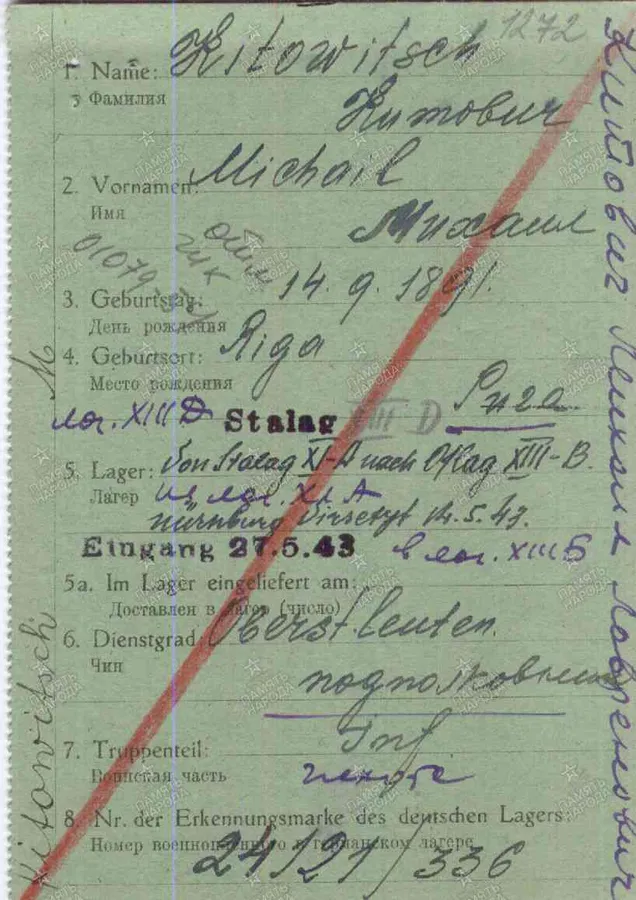 1272
1. Name: Kitowitsch
Фамилия Китович
2. Vornamen: Michail
Имя Михаил
01079-51
3. Geburtstag: 14. 9. 1891.
День рождения
4. Geburtsort: Riga
Место рождения
Рига
лаг. XIII D Stalag XIII D
5. Lager: Von Stalag XI-A nach Oflag XIII-B.
Лагер из лаг. XI A
Nürnburg versetzt 14.5.43.
Eingang 27.5.43 в лаг. XIII Б
5a. Im Lager eingeliefert am:
Доставлен в лагер (число)
6. Dienstgrad: Oberstleuten.
Чин подполковник
7. Truppenteil: Inf
Воинская часть пехота
8. Nr. der Erkennungsmarke des deutschen Lagers:
Номер военнопленного в германском лагере
24/21/336
Китович Михаил Лавренович
Kitowitsch M
ПАМЯТЬ НАРОДА